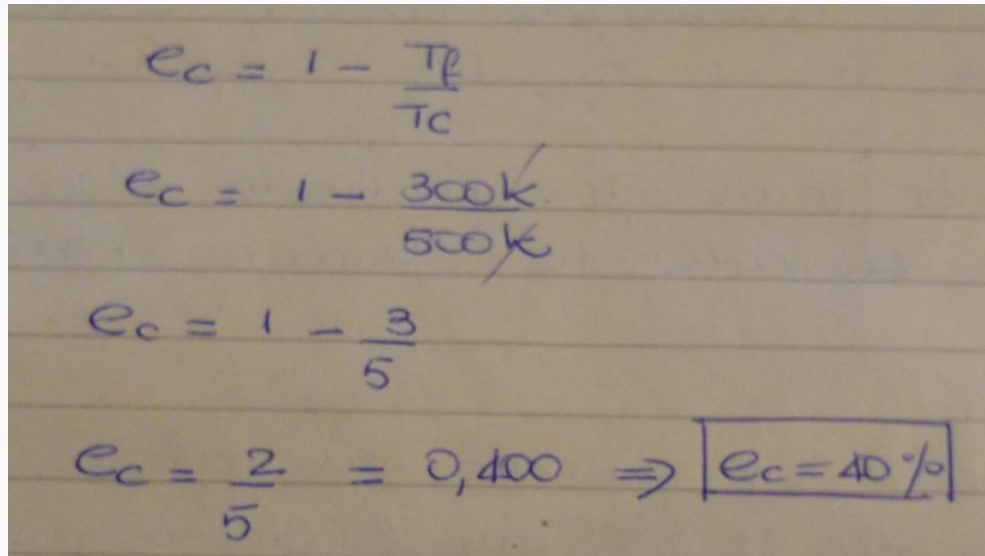 ec = 1 - Tf/Tc
ec = 1 - 300k/500k
ec = 1 - 3/5
ec = 2/5 = 0,400 ⇒ ec = 40%